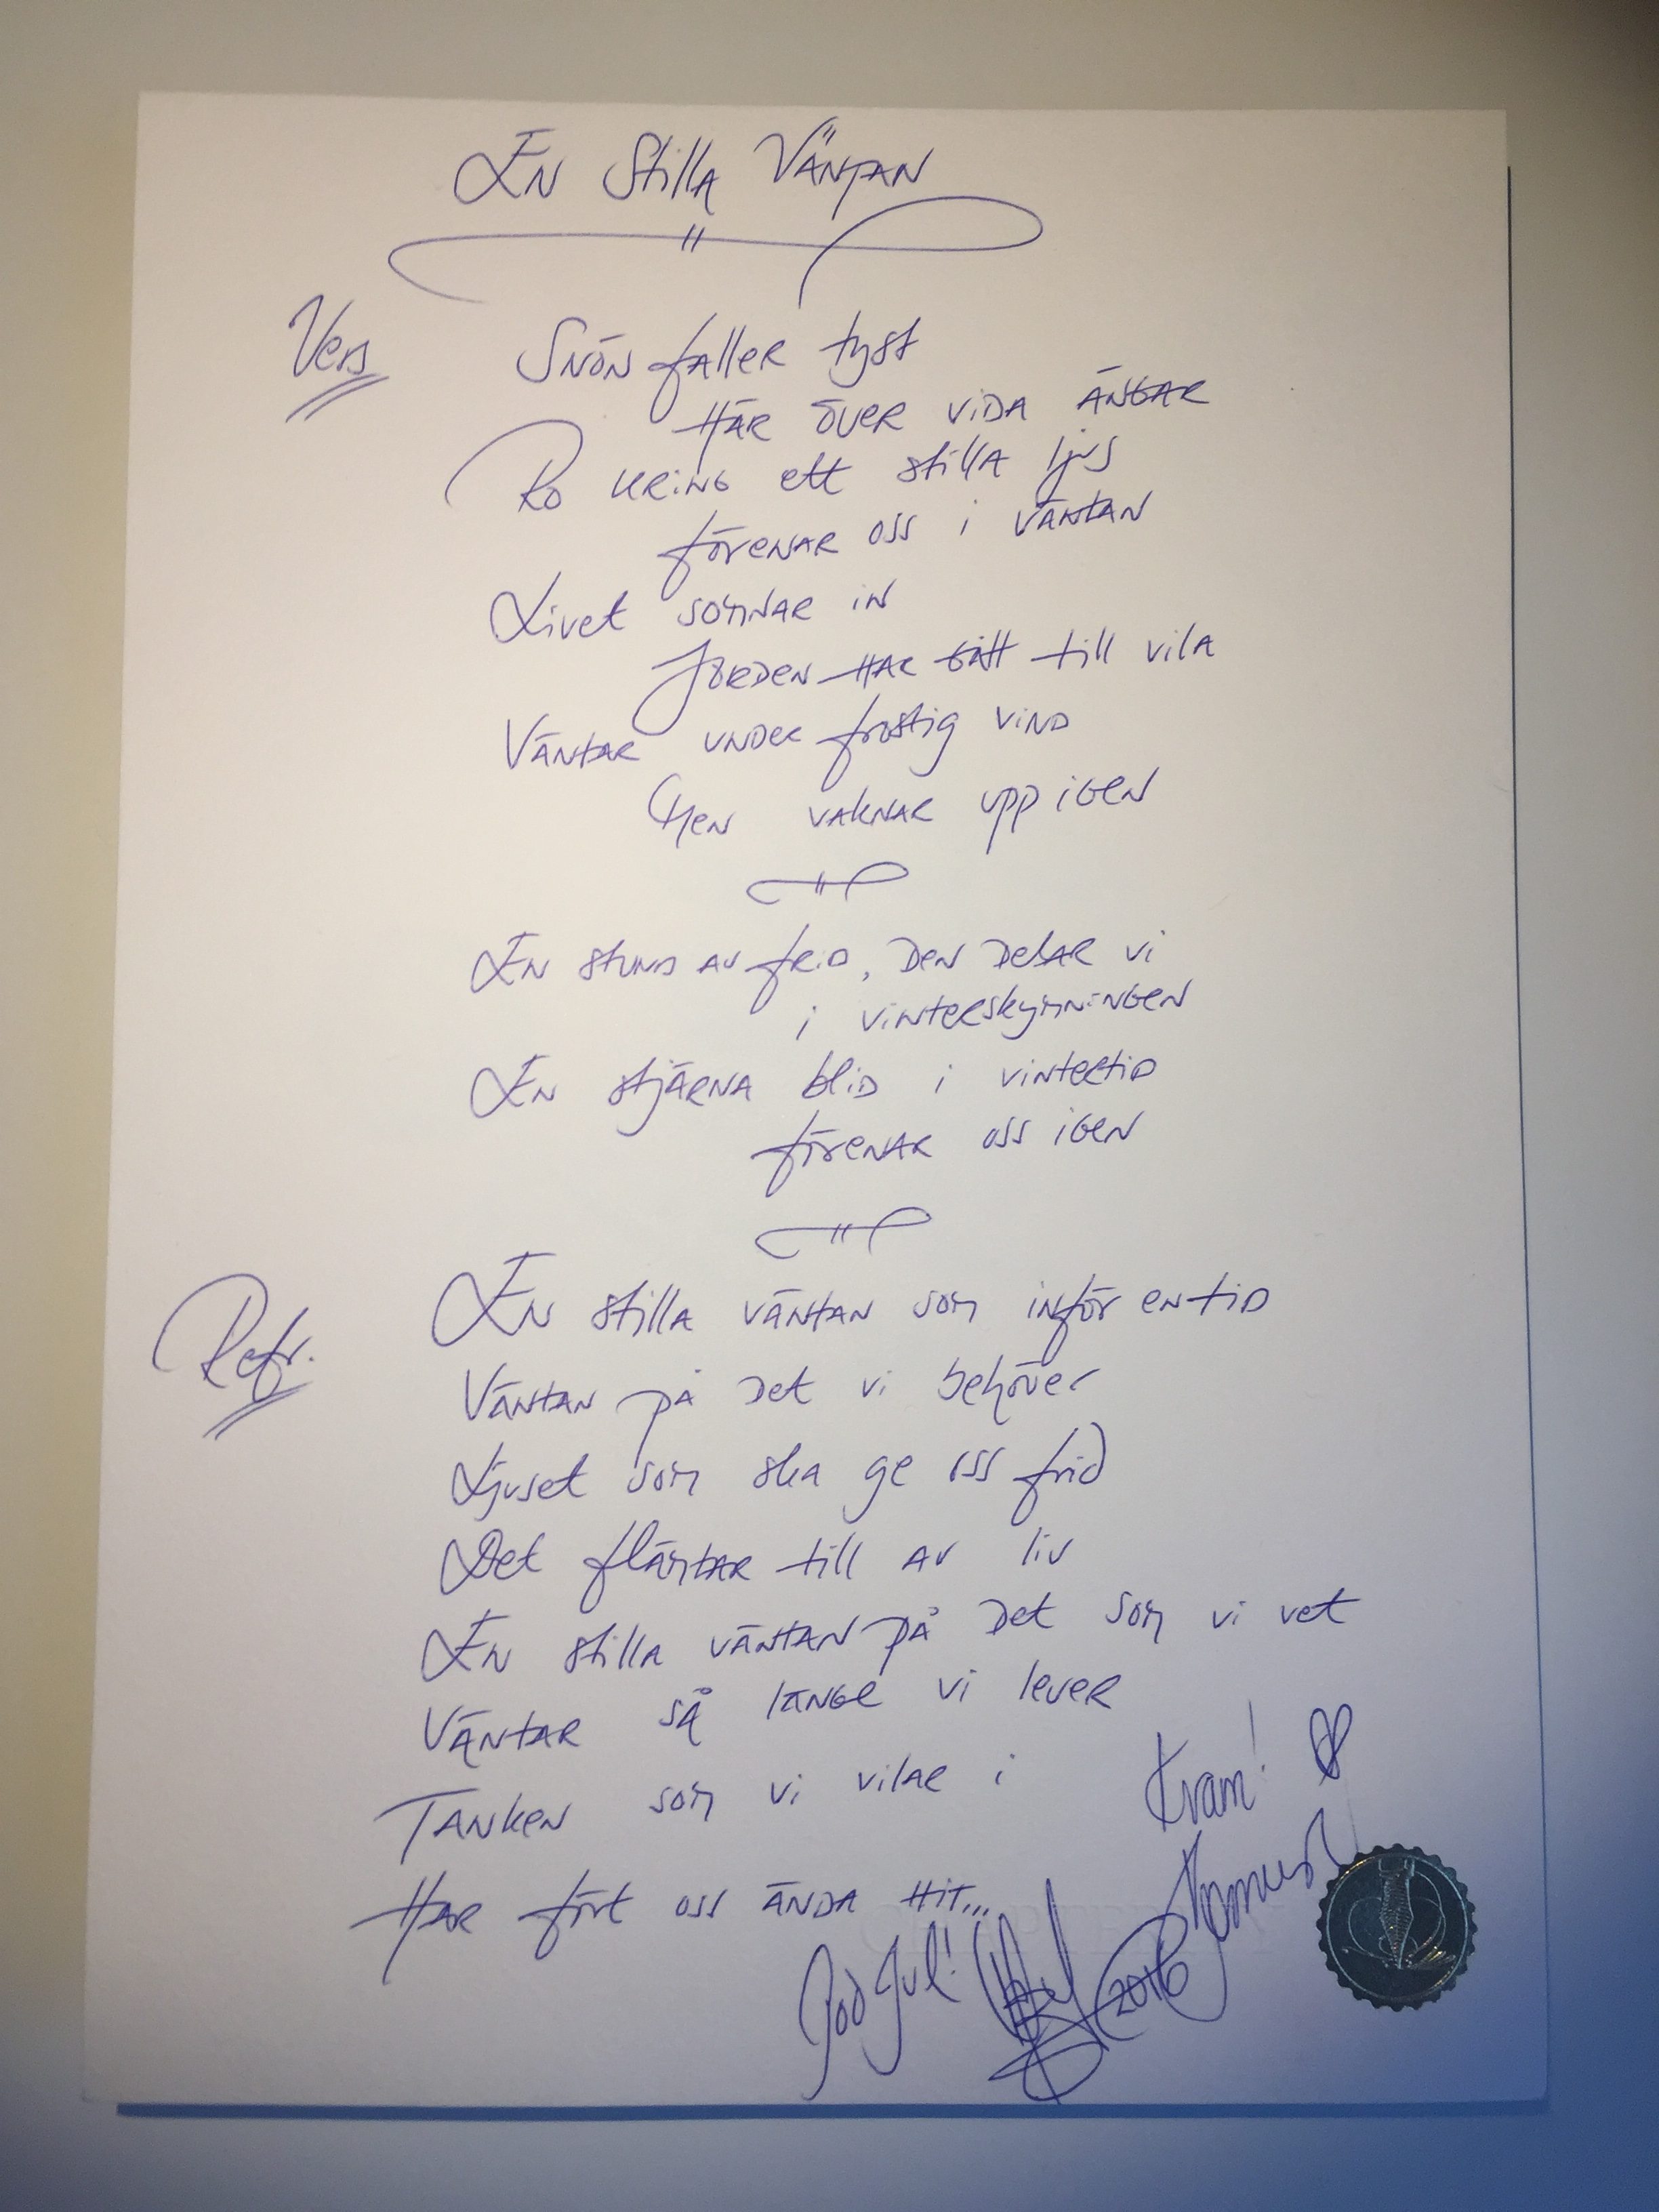 En Stilla Väntan
Vers
Snön faller tyst
Här över vida ängar
Ro kring ett stilla ljus
förenar oss i väntan
Livet somnar in
Jorden har gått till vila
Väntar under frostig vind
Men vaknar upp igen
En stund av frid, den delar vi
i vinterskymningen
En stjärna blid i vintertid
förenar oss igen
Refr.
En stilla väntan som inför en tid
Väntan på det vi behöver
Ljuset som ska ge oss frid
Det flämtar till av liv
En stilla väntan på det som vi vet
Väntar så länge vi lever
Tanken som vi vilar i
Har fört oss ända hit...
Kram!
God Jul!
2016